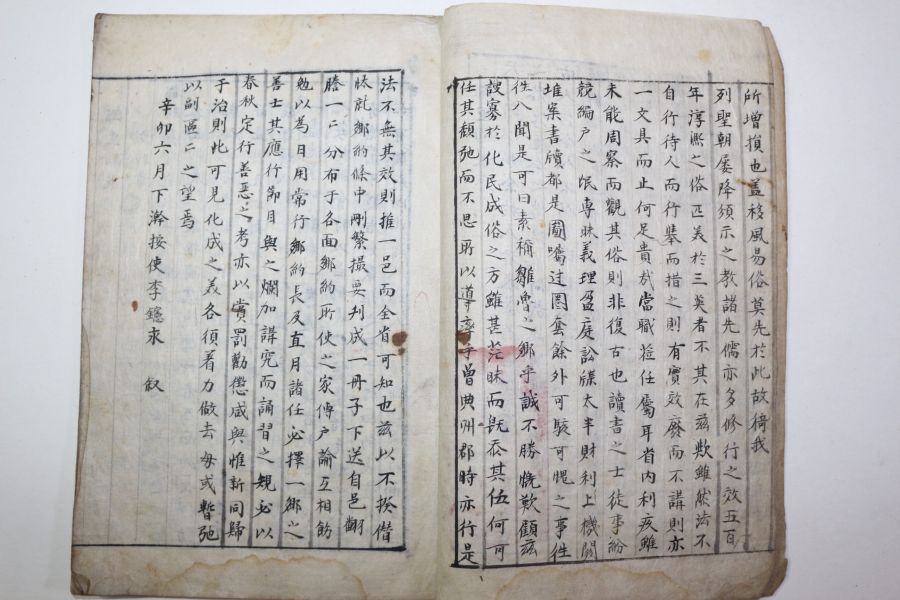 所增損也盖移風易俗莫先於此故猗我
列聖朝屡降頒示之教諸先儒亦多修行之效五百
年淳熙之俗匹美於三英者不其在玆歟雖然法不
自行待人而行擧而措之則有實效廢而不講則亦
一文具而止何足貴哉當職莅任屬耳省内利疾雖
未能周察而觀其俗則非復古也讀書之士徒事紛
競編户之氓専昧義理盈庭訟牒太半財利上機關
堆案書牘都是圖囑过圈套餘外可駭可愕之事徃
徃入聞是可曰素稱鄒魯之鄉乎誠不勝慨歎顧玆
謏寡於化民成俗之方雖甚茫昧而旣忝其伍何可
任其頹弛而不思所以導齊乎曾典州郡時亦行是
法不無其效則推一邑而全省可知也玆以不揆僭
昧就鄉約條中刪繁撮要刋成一冊子下送自邑翻
謄一二分布于各面鄉約所使之家傳户諭互相飭
勉以為日用常行鄉約長及直月諸任必擇一鄉之
善士其應行節目與之爛加講究而誦習之規必以
春秋定行善惡之考亦以賞罰勸懲咸與惟新同歸
于治則此可見化成之美各須着力做去毋或暫弛
以副區二之望焉
辛卯六月下澣按使李𨯶求 叙